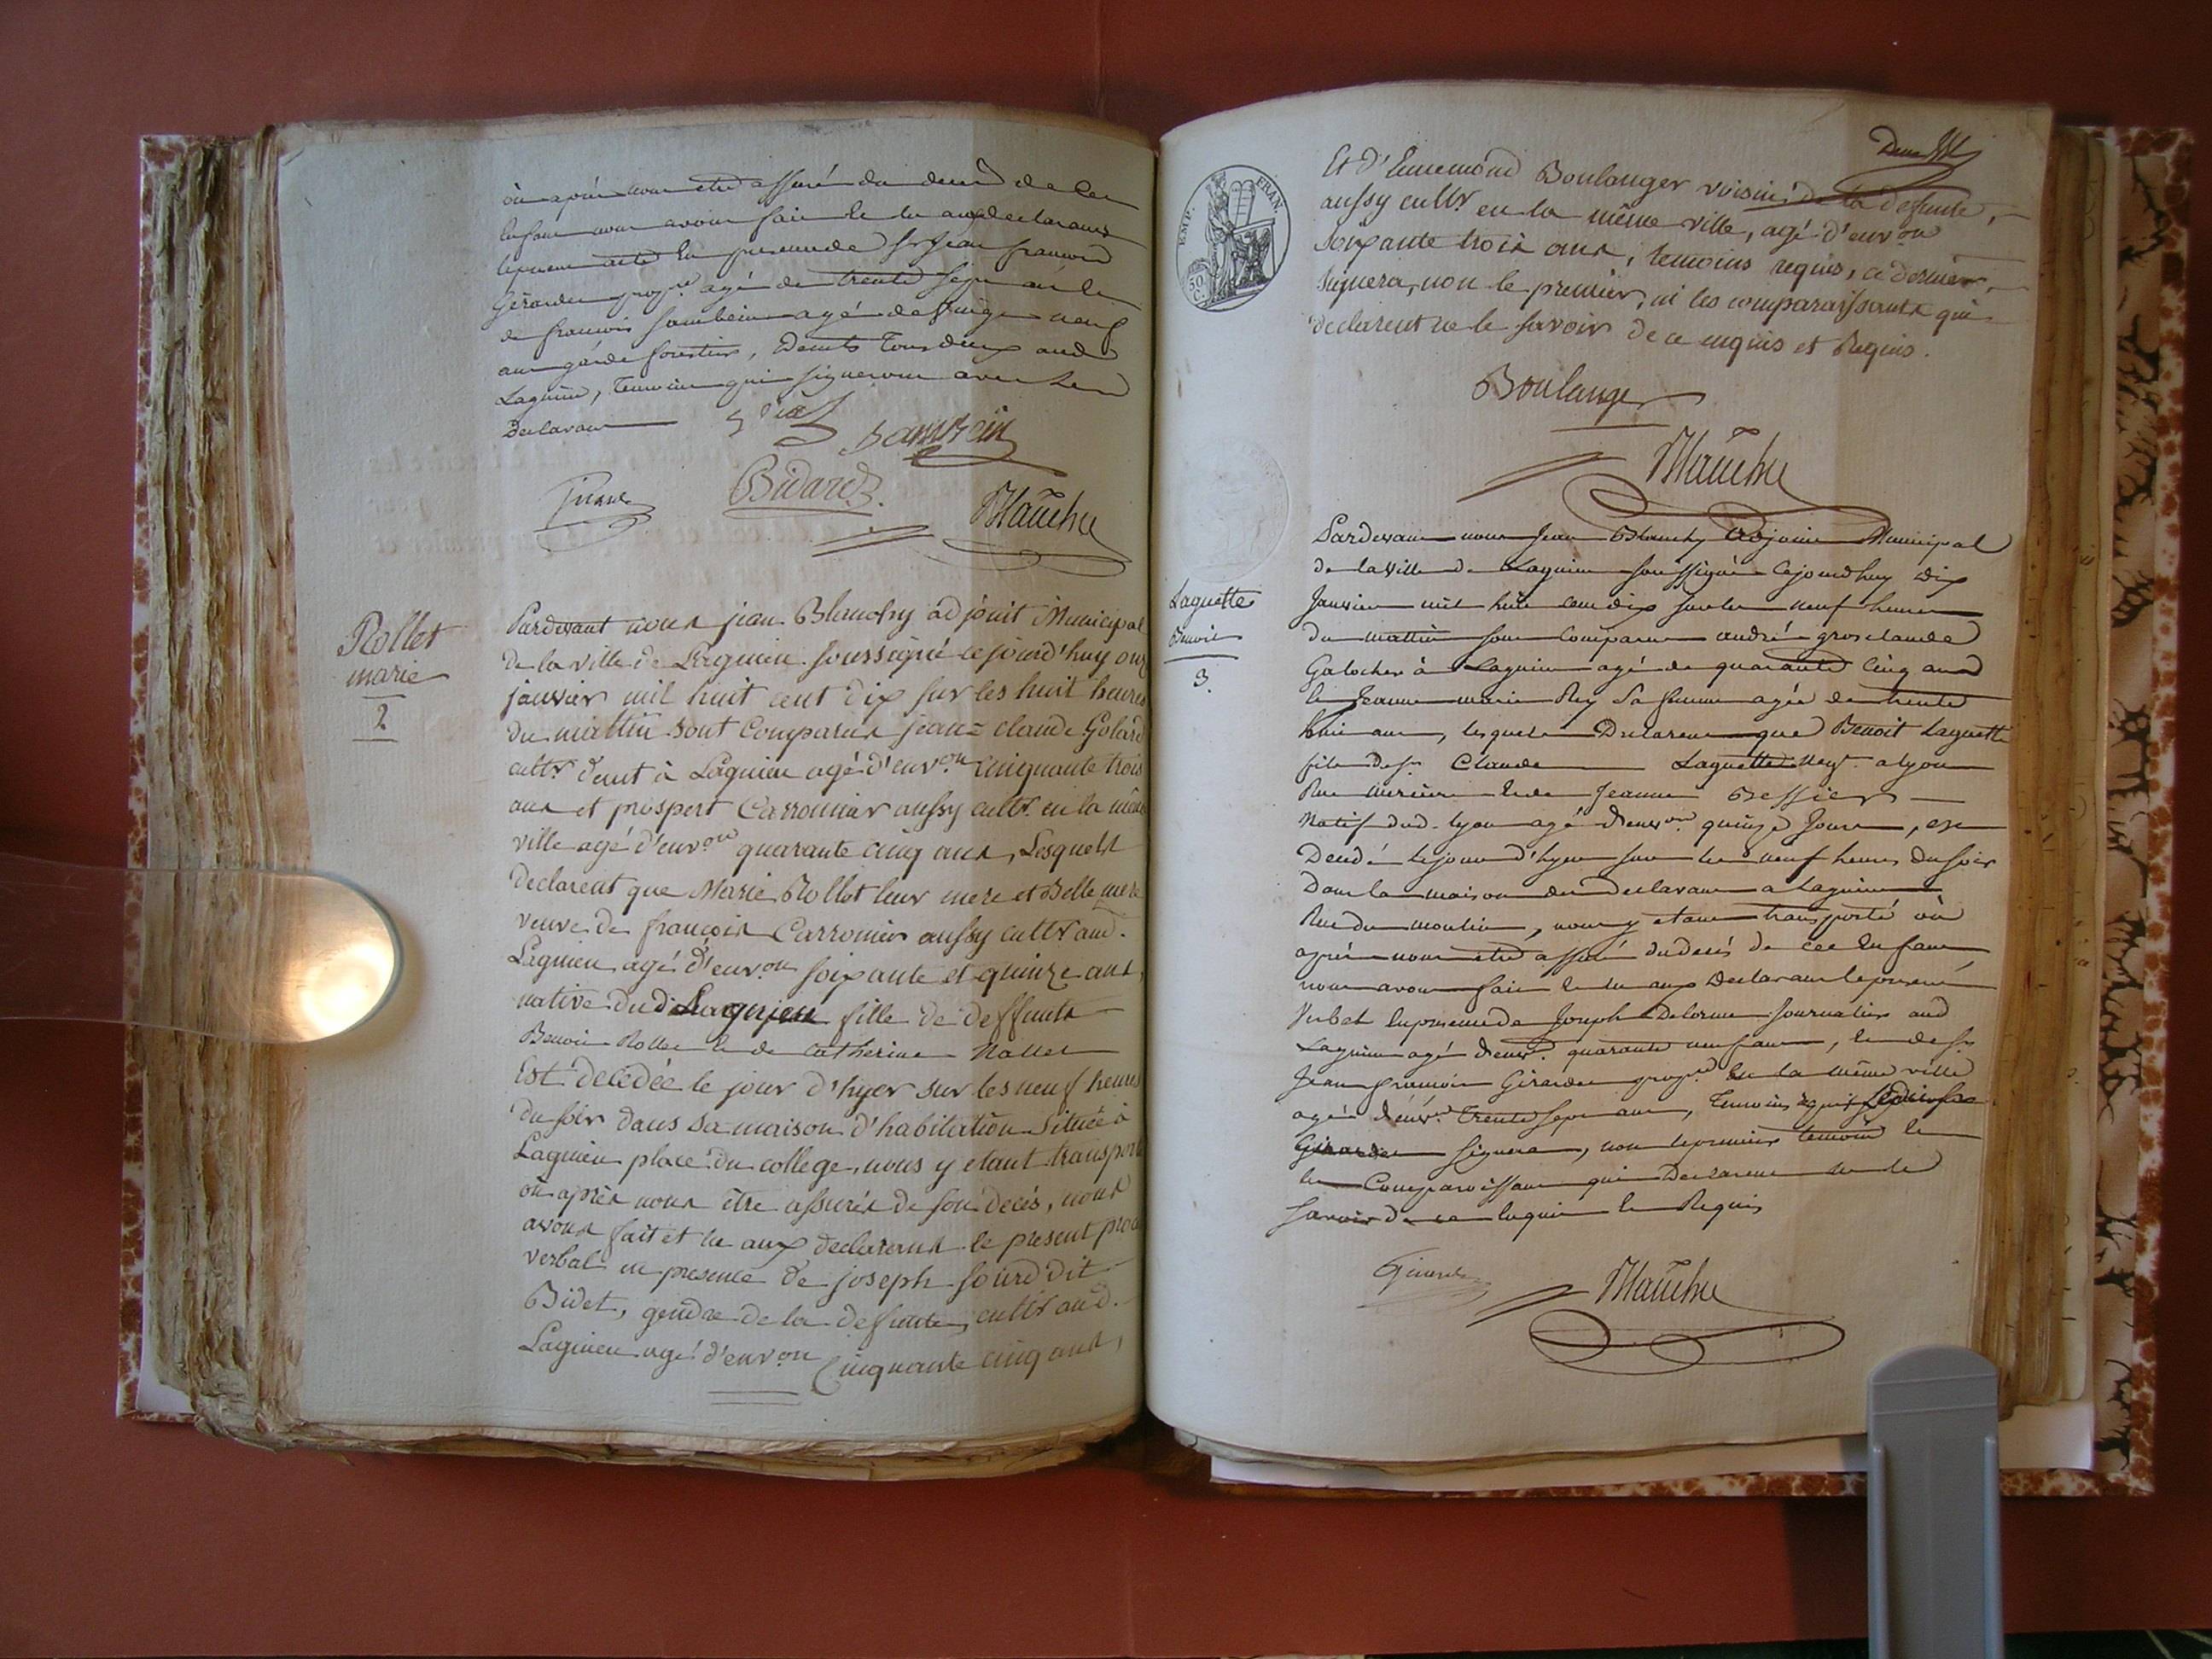 où après nous être assuré du decès de cet
enfant nous avons fait et lu aux declarants
le present acte en presence de Sr Jean françois
Girardet propre. agé de trente sept ans et
de françois Sambein agé de vingt neuf
ans garde forestier, demts tous deux aud
Lagnieu, temoins qui signeront avec les
Declarants
Sambein
Girardet Bidard Blanchy
Rollet
marie
2
Pardevant nous jean Blanchy adjoint Municipal
de la ville de Lagnieu soussigné cejourd'huy onze
janvier mil huit cent dix sur les huit heures
du mattin sont Comparus jean=claude Golard
cultr demt à Lagnieu agé d'envon Cinquante trois
ans et prospert Carronnier aussy cultr. en la même
ville agé d'envon quarante cinq ans, Lesquels
declarent que Marie Rollet leur mere et Belle mere
veuve de françois Carronier aussy cultr aud.
Lagnieu agé d'envon soixante et quinze ans,
native dudi Lagnieu fille de deffunts
Benoit Rollet et de Catherine Nallet
Est décedée le jour d'hyer sur les neuf heures
du soir dans sa maison d'habitation située à
Lagnieu place du college, nous y etant transporté
où après nous être assurés de son decés, nous
avons fait et lu aux declarants le present procé
verbal en presence de joseph sourd dit
Bidet, gendre de la defunte, cultr aud.
Lagnieu agé d'envon Cinquante cinq ans,
Deux
EMP. FRAN.
50 C.
Et d'Ennemond Boulanger voisin de la defunte,
aussy cultr en la même ville, agé d'envon
soixante trois ans, temoins requis, ce dernier,
signera, non le premier, ni les comparaissants qui
declarent ne le savoir de ce enquis et Requis.
Boulanger
Blanchy
Laguette
Benoit
3.
Pardevant nous Jean Blanchy Adjoint Municipal
de la ville de Lagnieu soussigné Cejourdhuy dix
Janvier mil huit cent dix sur les neuf heures
du mattin sont Comparus andré grosclaude
Galocher à Lagnieu agé de quarante cinq ans
et Jeanne marie Rey Sa femme agée de trente
huit ans, lesquels Declarent que Benoit Laguette
fils de Sr. Claude Laguette Negt. a lyon
Rue merciere et de Jeanne Bessier
Natif dud. lyon agé d'envon quinze Jours, est
Decedé le jour d'hyer sur les neuf heures du soir
Dans la maison des Declarants a Lagnieu
Rue du moulin, nous y etant transporté où
après nous être assuré du decés de cet Enfant
nous avons fait et lu aux Declarants le present
Verbal en presence de Joseph Delorme Journalier aud
Lagnieu agé d'envn. quarante neuf ans, et de Sr
Jean françois Girardet propre en la même ville
agé d'envn. trente sept ans, temoins requis
Girardet signera, non le premier temoin et
les Comparoissants qui Declarent ne le
savoir de ce Enquis et Requis
Girardet Blanchy